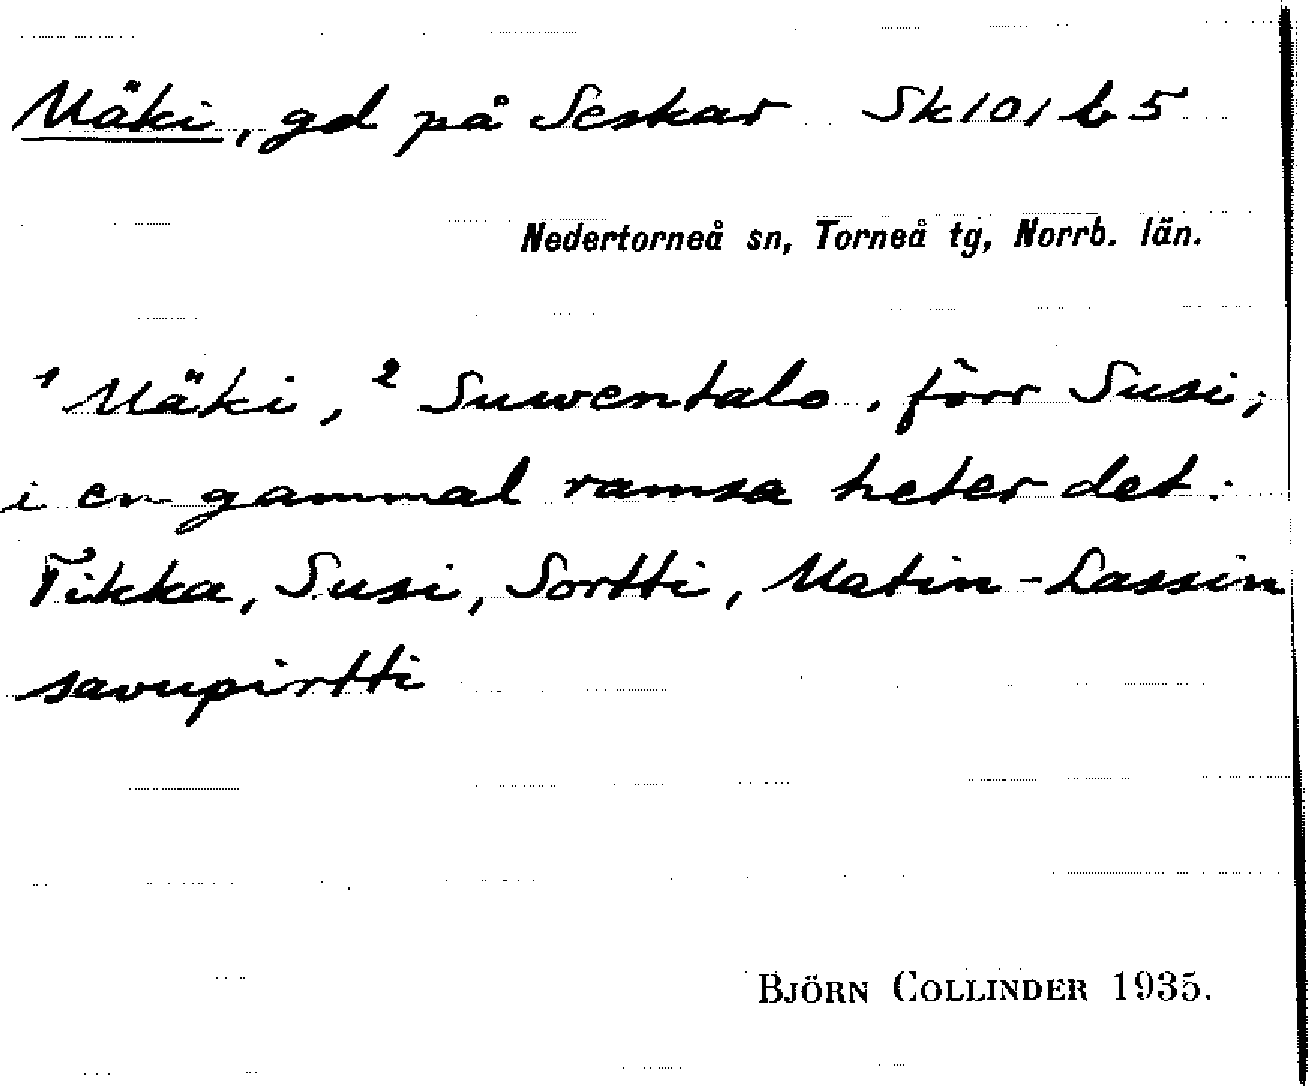 Mäki, gd på Seskar Sk 101 b 5
Nedertorneå sn, Torneå tg, Norrb. län.
¹ Mäki, ² Suwentalo, förr Susi,
i en gammal ramsa heter det:
Tikka, Susi, Sortti, Matin-Lassin
savupirtti
BJÖRN COLLINDER 1935.